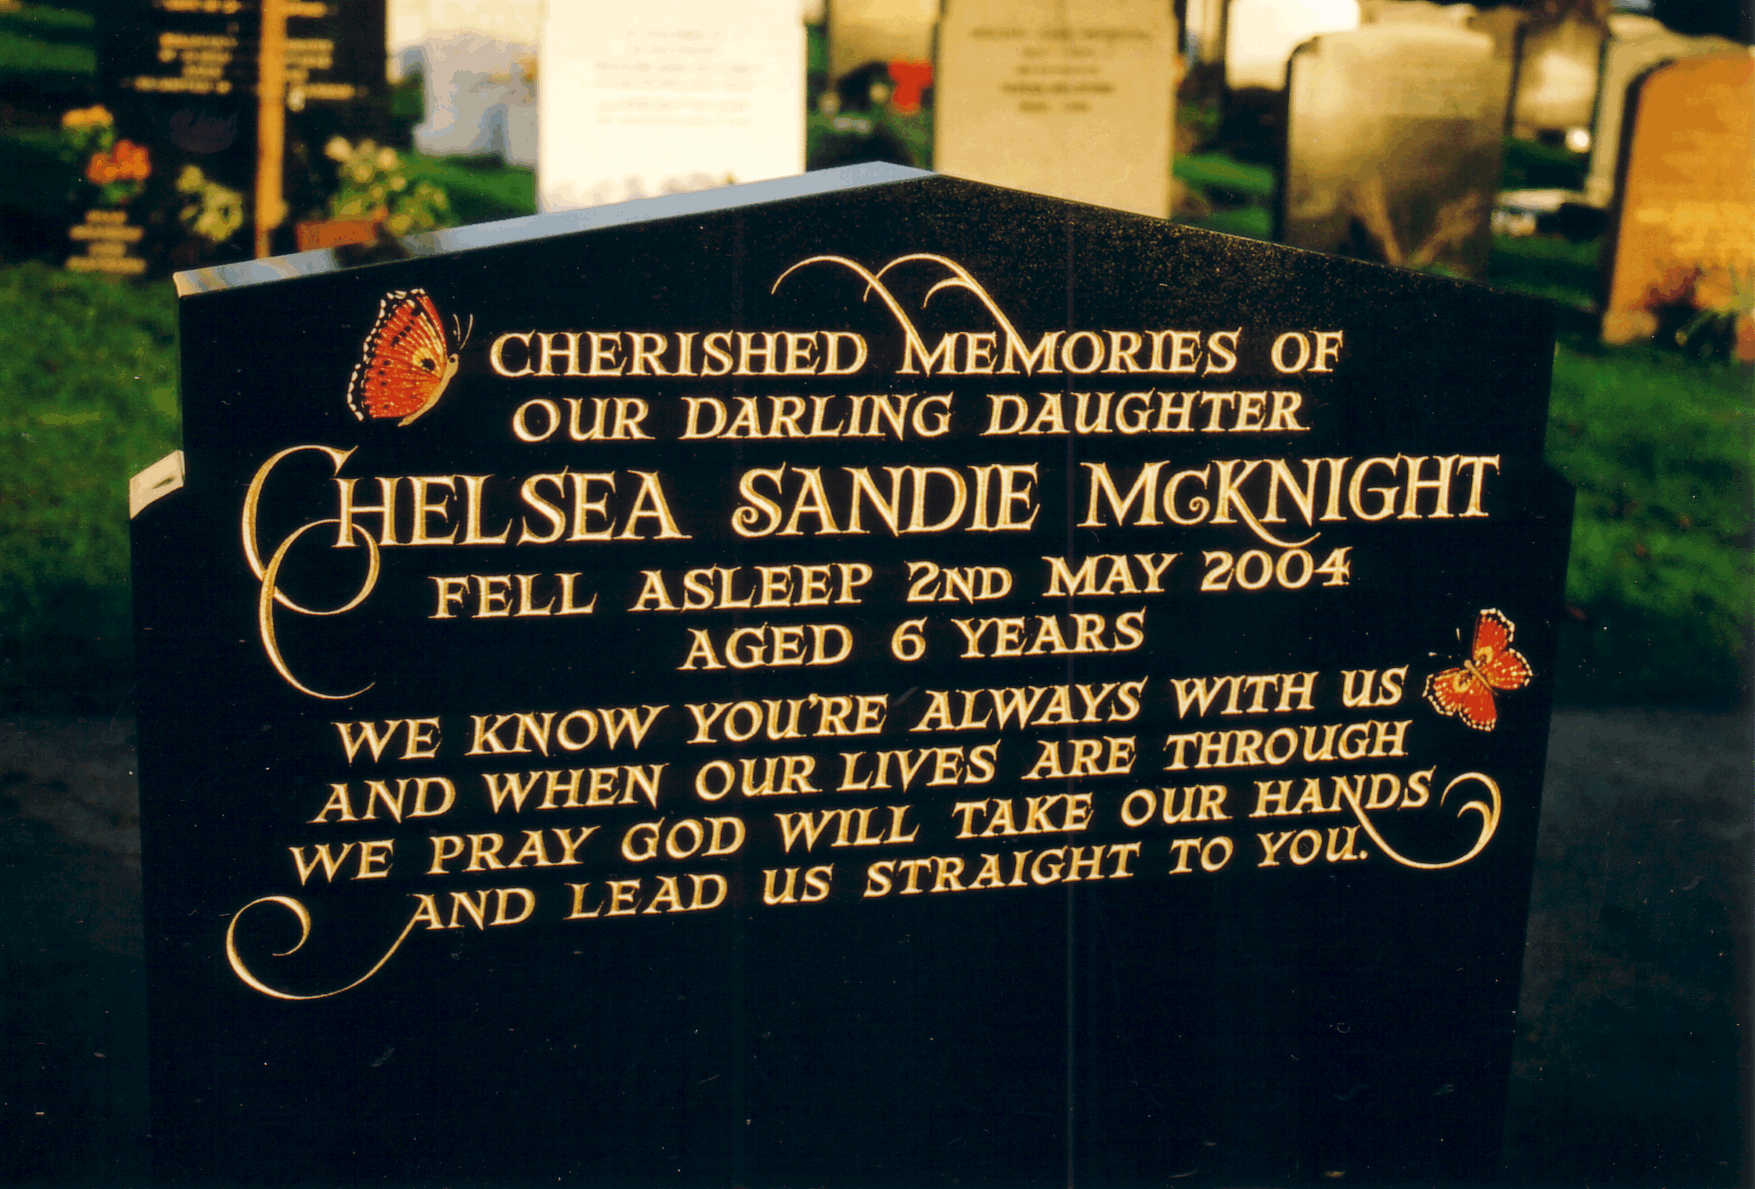 CHERISHED MEMORIES OF
OUR DARLING DAUGHTER
CHELSEA SANDIE McKNIGHT
FELL ASLEEP 2ND MAY 2004
AGED 6 YEARS
WE KNOW YOU'RE ALWAYS WITH US
AND WHEN OUR LIVES ARE THROUGH
WE PRAY GOD WILL TAKE OUR HANDS
AND LEAD US STRAIGHT TO YOU.